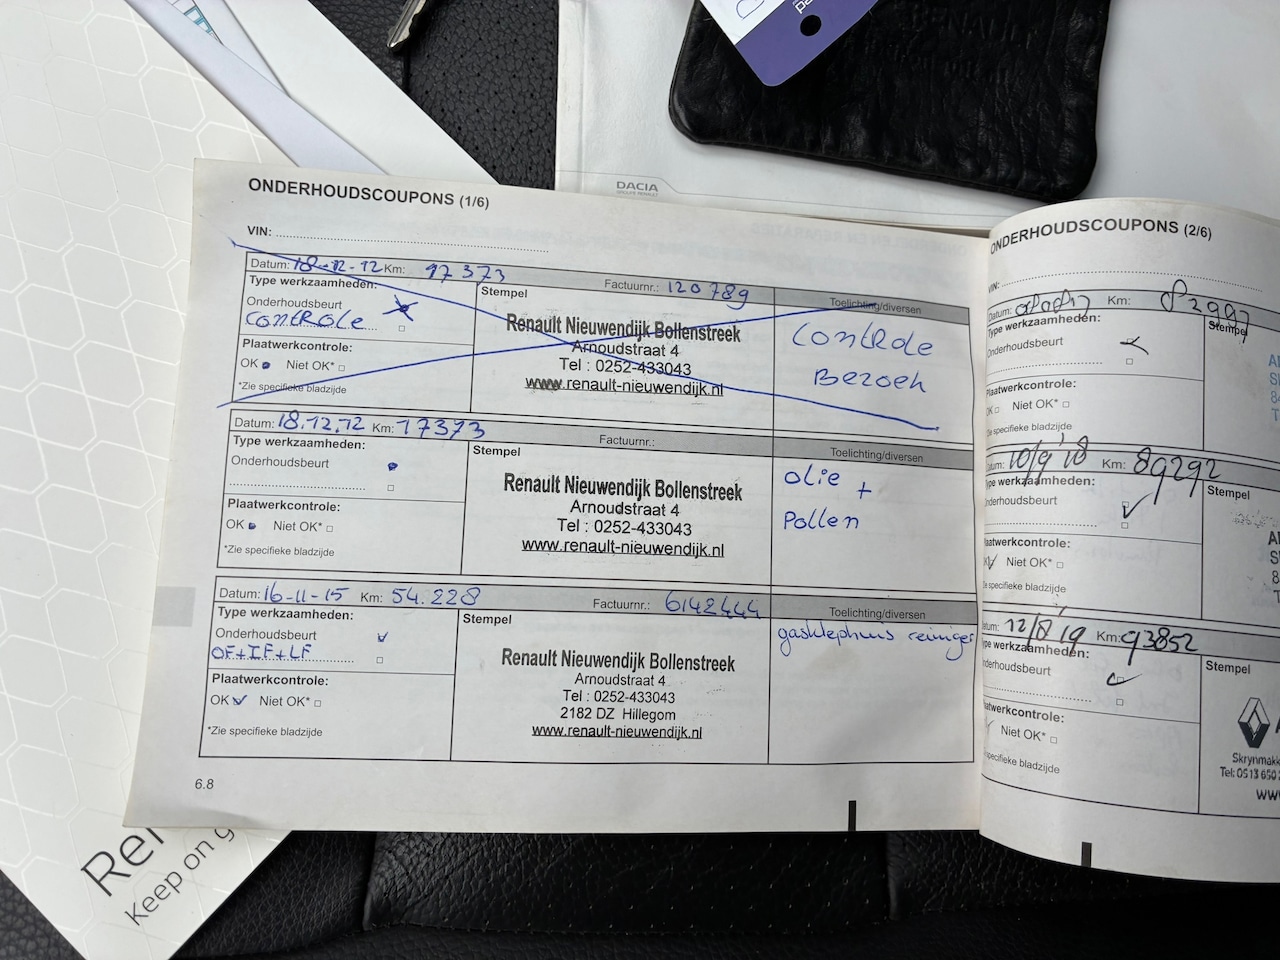 DACIA
GROUPE RENAULT
ONDERHOUDSCOUPONS (1/6)
VIN:
Datum: 18-12-12 Km: 17373 Factuurnr.: 120789
Type werkzaamheden: Stempel Toelichting/diversen
Onderhoudsbeurt
CONTROLE
Plaatwerkcontrole:
OK Niet OK*
*Zie specifieke bladzijde
Renault Nieuwendijk Bollenstreek
Arnoudstraat 4
Tel : 0252-433043
www.renault-nieuwendijk.nl
CONTROLE
BEZOEK
Datum: 18.12.12 Km: 17373 Factuurnr.:
Type werkzaamheden: Stempel Toelichting/diversen
Onderhoudsbeurt
Plaatwerkcontrole:
OK Niet OK*
*Zie specifieke bladzijde
Renault Nieuwendijk Bollenstreek
Arnoudstraat 4
Tel : 0252-433043
www.renault-nieuwendijk.nl
OLIE +
POLLEN
Datum: 16-11-15 Km: 54.228 Factuurnr.: 6142444
Type werkzaamheden: Stempel Toelichting/diversen
Onderhoudsbeurt
OF+IF+LF
Plaatwerkcontrole:
OK Niet OK*
*Zie specifieke bladzijde
Renault Nieuwendijk Bollenstreek
Arnoudstraat 4
Tel : 0252-433043
2182 DZ Hillegom
www.renault-nieuwendijk.nl
gasklephuis reinigen
6.8
ONDERHOUDSCOUPONS (2/6)
VIN:
Datum: Km: 82997
Type werkzaamheden: Stempel
Onderhoudsbeurt
Plaatwerkcontrole:
OK Niet OK*
*Zie specifieke bladzijde
Datum: 10/9/18 Km: 89292
Type werkzaamheden: Stempel
Onderhoudsbeurt
Plaatwerkcontrole:
Niet OK*
*Zie specifieke bladzijde
Datum: 12/8/19 Km: 93852
Type werkzaamheden: Stempel
Onderhoudsbeurt
Plaatwerkcontrole:
Niet OK*
specifieke bladzijde
Tel: 0513 650
keep on